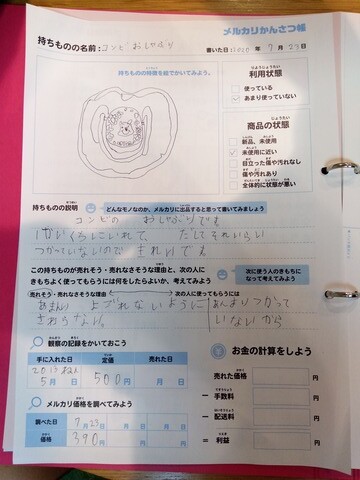 メルカリかんさつ帳
持ちものの名前：コンビおしゃぶり
書いた日：2020年 7月23日
持ちものの特徴を絵でかいてみよう。
利用状態
使っている
あまり使っていない
商品の状態
新品、未使用
未使用に近い
目立った傷や汚れなし
傷や汚れあり
全体的に状態が悪い
持ちものの説明 どんなモノなのか、メルカリに出品すると思って書いてみましょう
コンビの おしゃぶりです
1かいくちにいれて、だしてそれいらい
つかっていないので きれいです
この持ちものが売れそう・売れなさそうな理由と、次の人に
きもちよく使ってもらうには何をしたらよいか、考えてみよう
次に使う人のきもちに
なって考えてみよう！
売れそう・売れなさそうな理由 次の人に使ってもらうには
あまり よごれないように あんまりつかって
さわらない。 いないから
観察の記録をかいておこう
手に入れた日 定価 売れた日
5月 日 500円 月 日
メルカリ価格を調べてみよう
調べた日 7月23日 月 日 月 日
価格 390円 円 円
お金の計算をしよう
売れた価格 円
− 手数料 円
− 配送料 円
＝ 利益 円